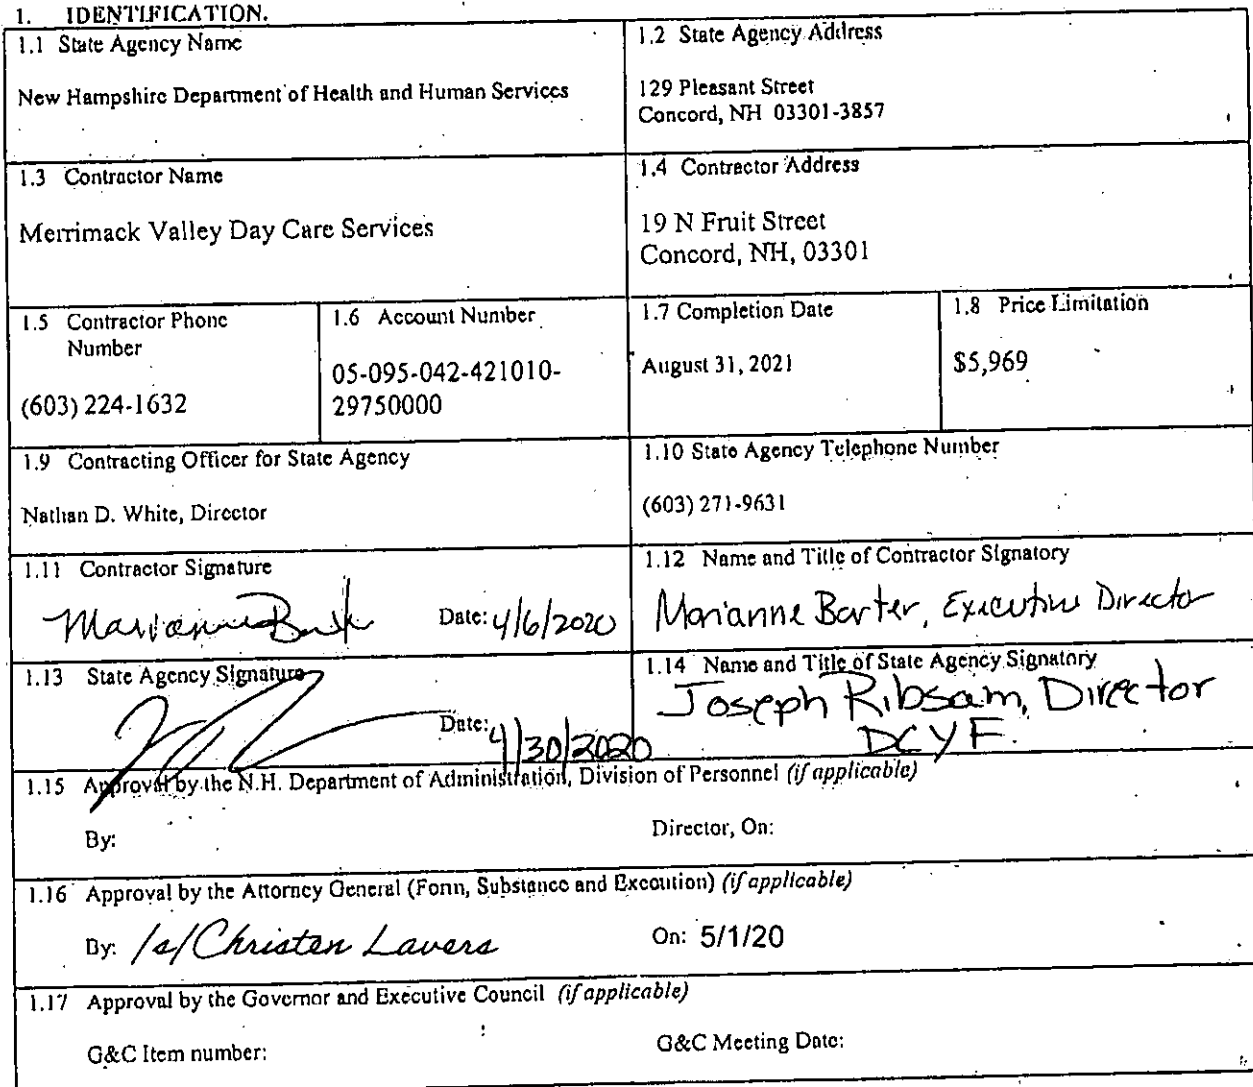 1. IDENTIFICATION.
1.1 State Agency Name
New Hampshire Department of Health and Human Services
1.2 State Agency Address
129 Pleasant Street
Concord, NH 03301-3857
1.3 Contractor Name
Merrimack Valley Day Care Services
1.4 Contractor Address
19 N Fruit Street
Concord, NH, 03301
1.5 Contractor Phone
Number
(603) 224-1632
1.6 Account Number
05-095-042-421010-
29750000
1.7 Completion Date
August 31, 2021
1.8 Price Limitation
$5,969
1.9 Contracting Officer for State Agency
Nathan D. White, Director
1.10 State Agency Telephone Number
(603) 271-9631
1.11 Contractor Signature
Date: 4/6/2020
1.12 Name and Title of Contractor Signatory
Marianne Barter, Executive Director
1.13 State Agency Signature
Date: 4/30/2020
1.14 Name and Title of State Agency Signatory
Joseph Ribsam, Director
DCYF
1.15 Approval by the N.H. Department of Administration, Division of Personnel (if applicable)
By: Director, On:
1.16 Approval by the Attorney General (Form, Substance and Execution) (if applicable)
By: /s/ Christen Lavers On: 5/1/20
1.17 Approval by the Governor and Executive Council (if applicable)
G&C Item number: G&C Meeting Date: